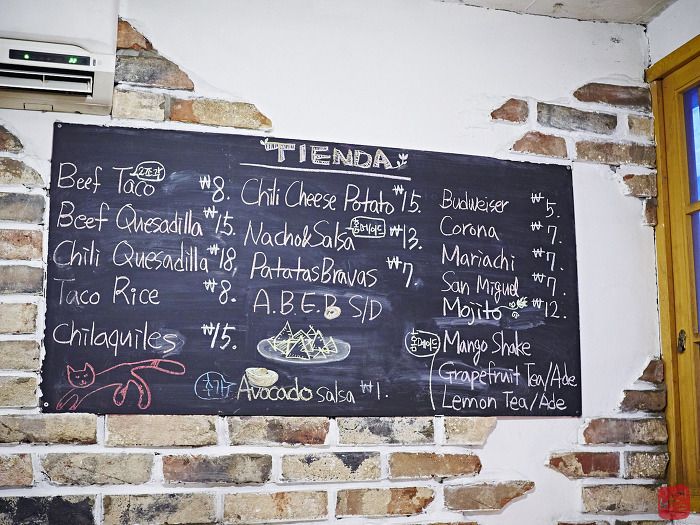 TIENDA
Beef Taco 2조각 ₩8.
Beef Quesadilla ₩15.
Chili Quesadilla ₩18.
Taco Rice ₩8.
Chilaquiles ₩15.
Chili Cheese Potato ₩15.
Nacho&Salsa 홈메이드 ₩13.
Patatas Bravas ₩7
A.B.E.B S/D
추가 Avocado salsa ₩1.
Budweiser ₩5.
Corona ₩7.
Mariachi ₩7.
San Miguel ₩7.
Mojito ₩12.
홈메이드 Mango Shake
Grapefruit Tea/Ade
Lemon Tea/Ade